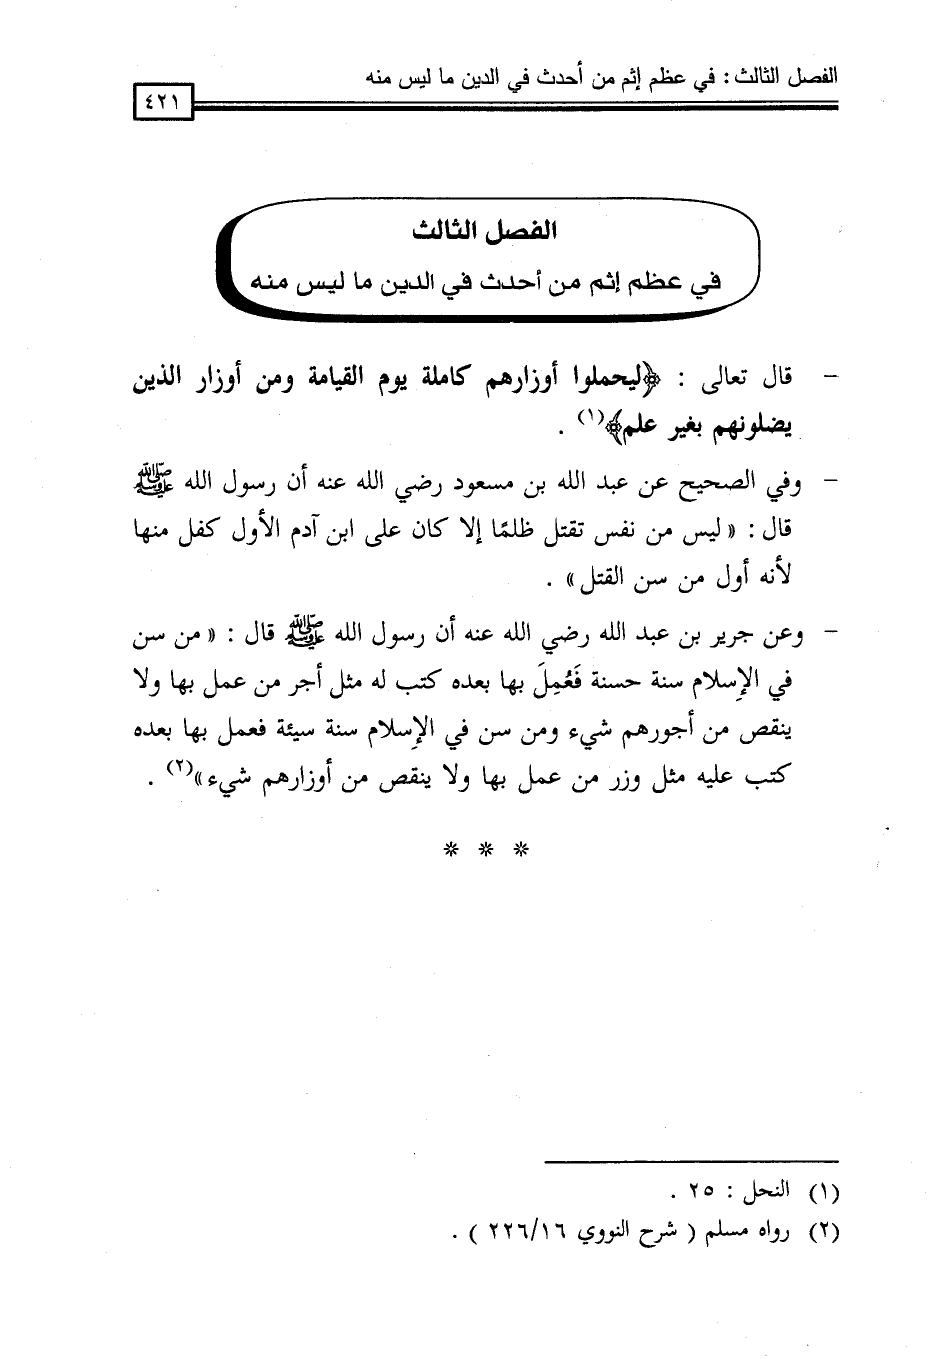 الفصل الثالث : في عظم إثم من أحدث في الدين ما ليس منه
٤٢١
الفصل الثالث
في عظم إثم من أحدث في الدين ما ليس منه
- قال تعالى : ﴿ليحملوا أوزارهم كاملة يوم القيامة ومن أوزار الذين
يضلونهم بغير علم﴾(١) .
- وفي الصحيح عن عبد الله بن مسعود رضي الله عنه أن رسول الله ﷺ
قال : « ليس من نفس تقتل ظلمًا إلا كان على ابن آدم الأول كفل منها
لأنه أول من سن القتل» .
- وعن جرير بن عبد الله رضي الله عنه أن رسول الله ﷺ قال : « من سن
في الإسلام سنة حسنة فَعُمِلَ بها بعده كتب له مثل أجر من عمل بها ولا
ينقص من أجورهم شيء ومن سن في الإسلام سنة سيئة فعمل بها بعده
كتب عليه مثل وزر من عمل بها ولا ينقص من أوزارهم شيء»(٢) .
* * *
(١) النحل : ٢٥ .
(٢) رواه مسلم ( شرح النووي ٢٢٦/١٦ ) .